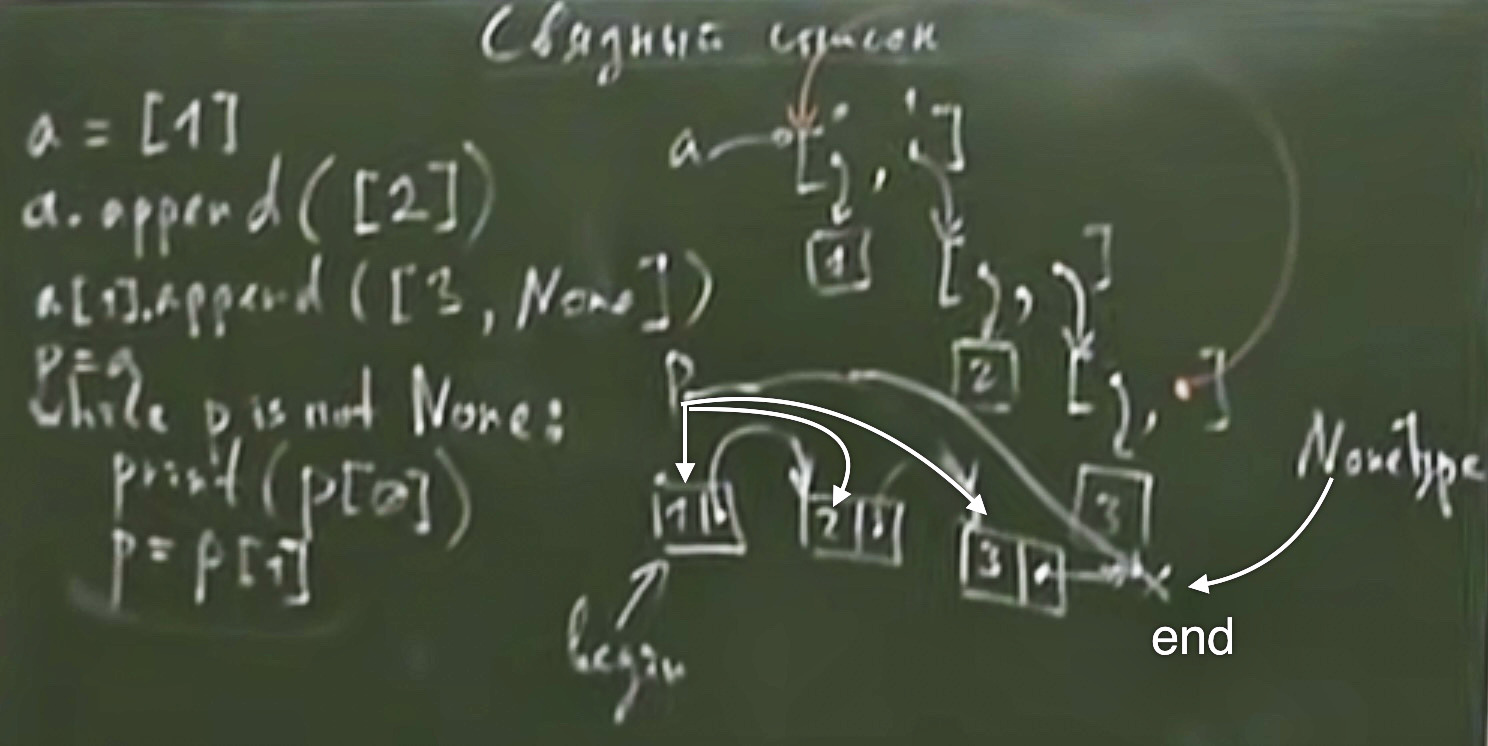 Связный список
a = [1]
a.append([2])
a[1].append([3, None])
p=a
While p is not None:
print(p[0])
p= p[1]
a [ , ]
1
[ , ]
2
[ , ]
3
P
1
2
3
begin
NoneType
end